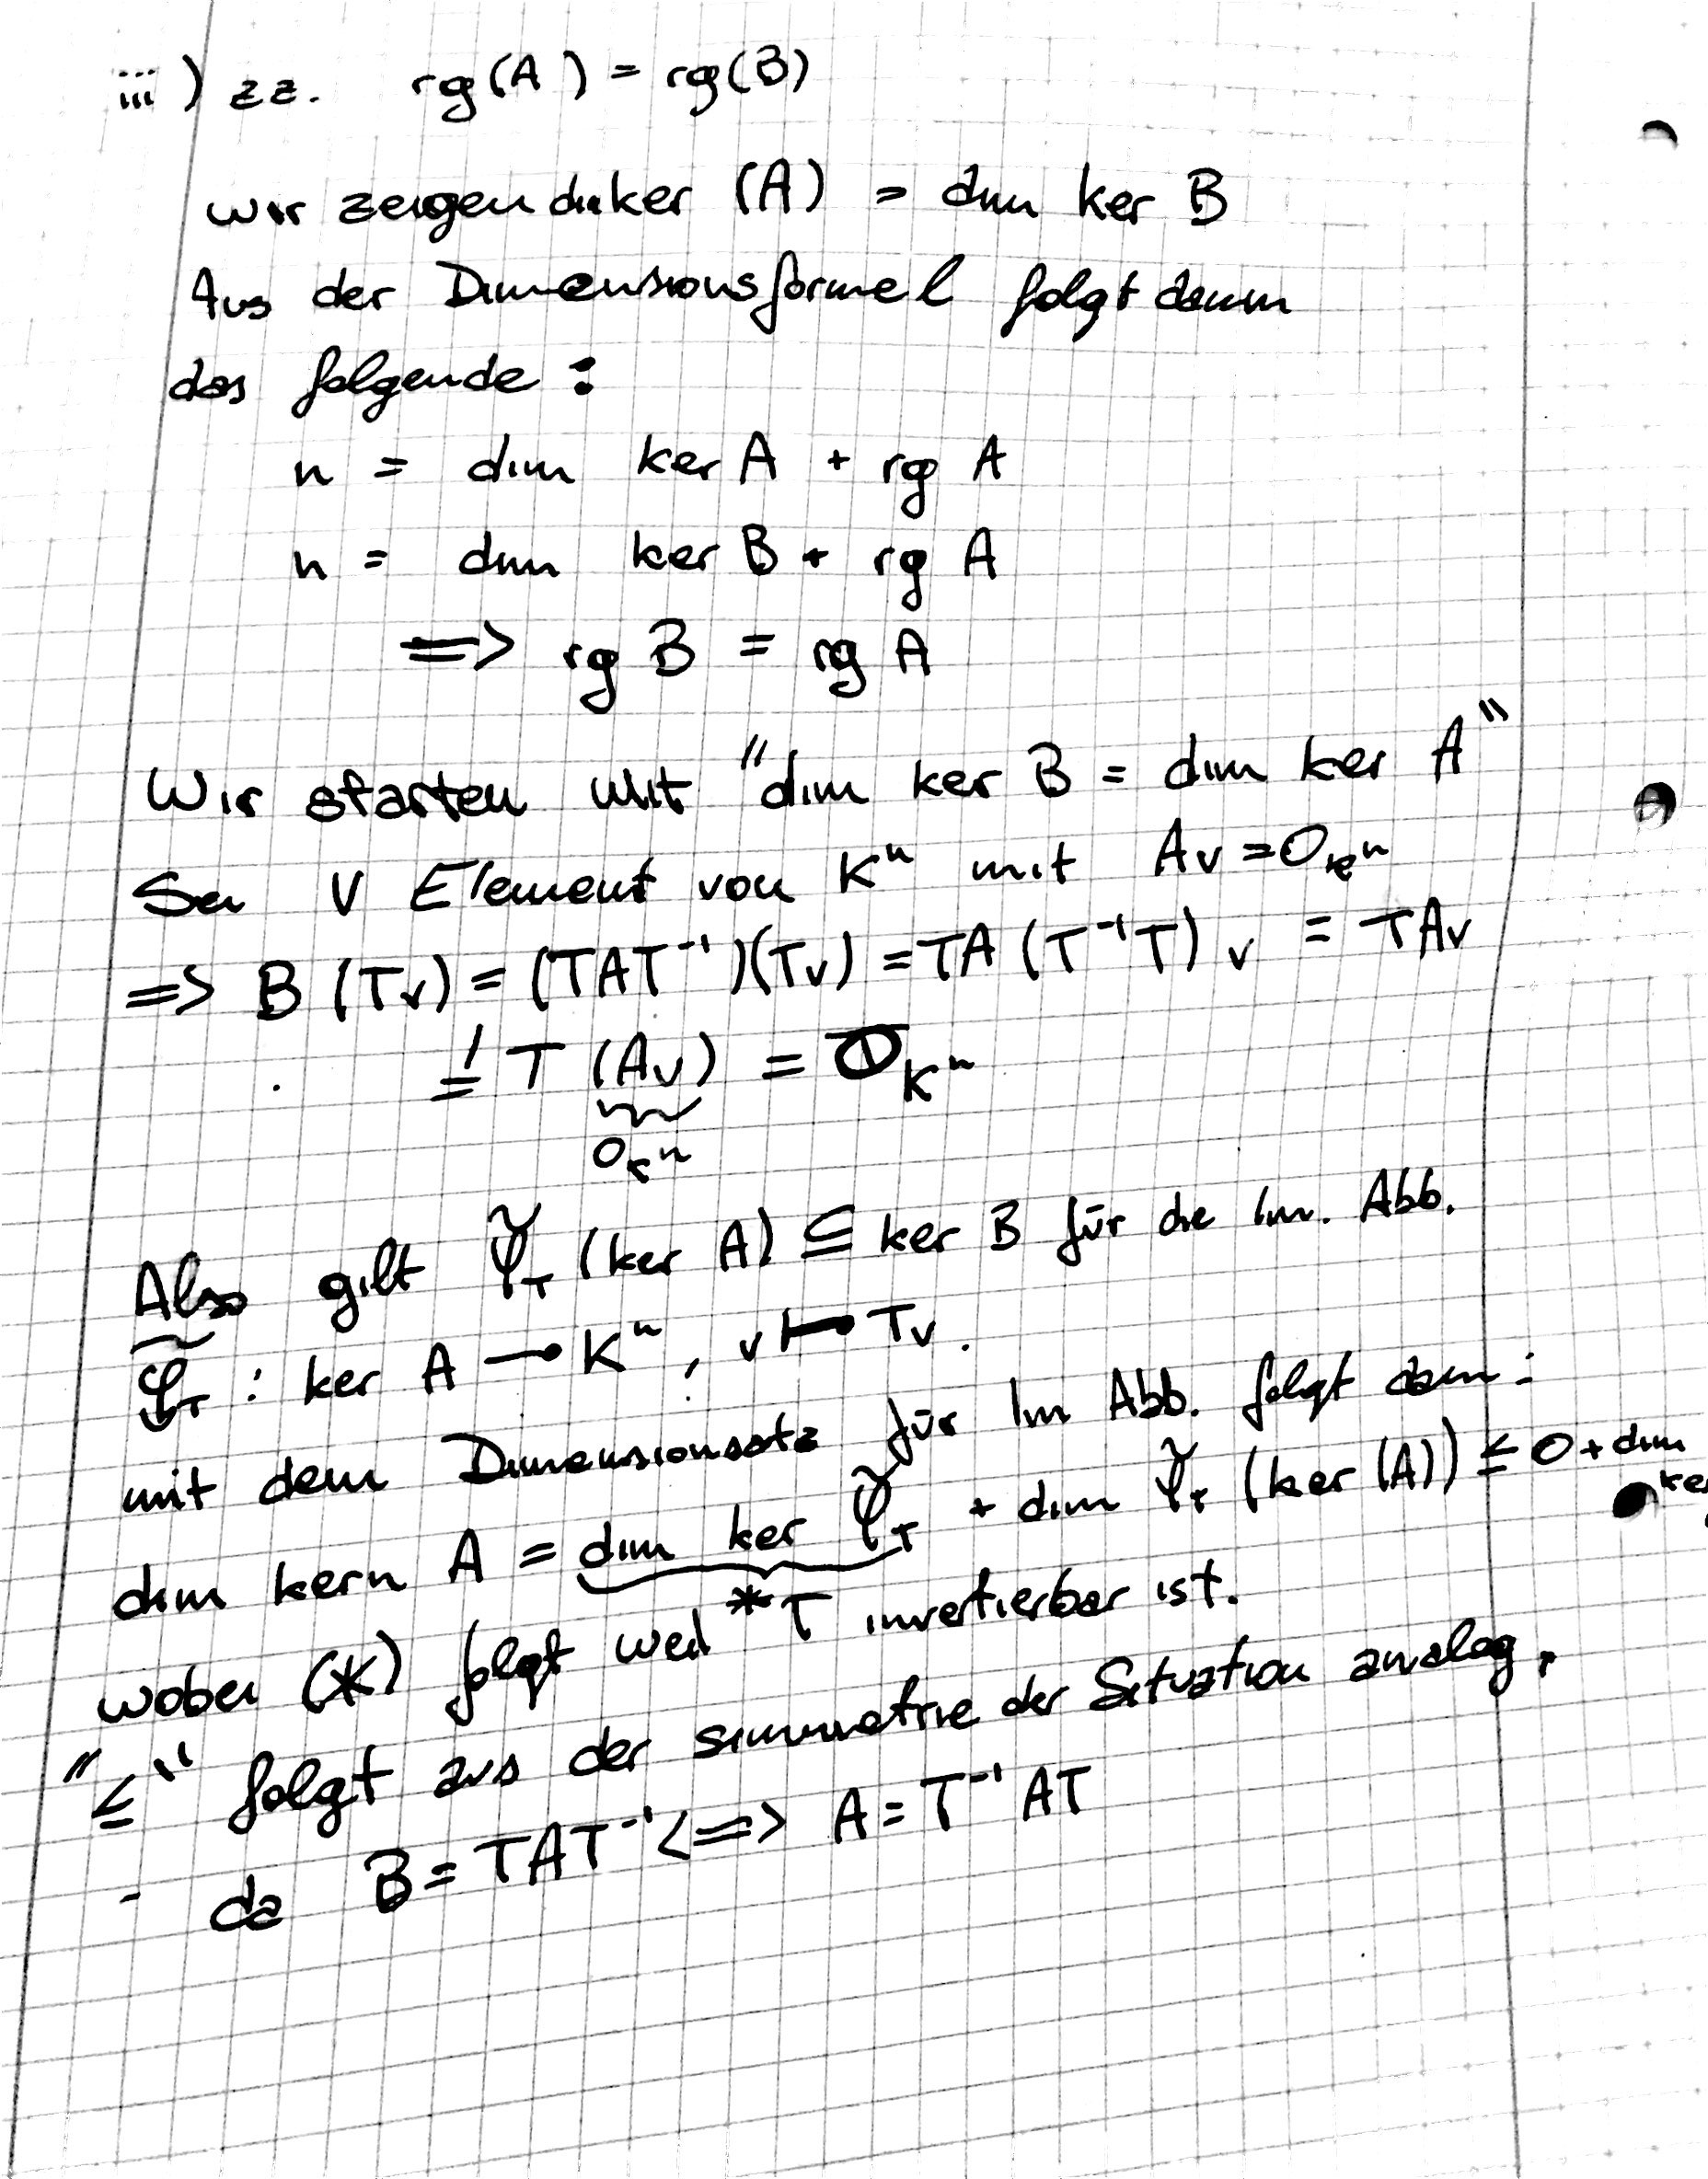 iii) zz. rg(A) = rg(B)
wir zeigen dim ker (A) = dim ker B
Aus der Dimensionsformel folgt dann
das folgende :
n = dim ker A + rg A
n = dim ker B + rg A
=> rg B = rg A
Wir starten mit "dim ker B = dim ker A"
Sei v Element von Kⁿ mit Av = 0_Kⁿ
=> B (Tv) = (TAT⁻¹)(Tv) = TA (T⁻¹T) v = TAv
= T (Av) = 0_Kⁿ
0_Kⁿ
Also gilt φ̃_T (ker A) ⊆ ker B für die lin. Abb.
φ̃_T : ker A → Kⁿ, v ↦ Tv.
mit dem Dimensionsatz für lin Abb. folgt dann :
dim kern A = dim ker φ̃_T + dim φ̃_T (ker (A)) ≤ 0 + dim ker
*
wobei (*) folgt weil T invertierbar ist.
"≤" folgt aus der simmetrie der Situation analog,
da B = TAT⁻¹ <=> A = T⁻¹AT